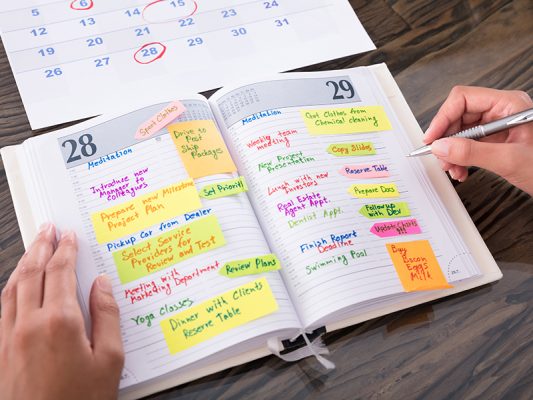 6
15
5
6
7
8
9
10
12
13
14
15
16
17
19
20
21
22
23
24
26
27
28
29
30
31
28
Sport Clothes
Meditation
Drive to
Post
Ship
Packages
Introduce new
Manager to
colleagues
Set Priority
Prepare new Milestone
Project Plan
Pickup Car from Dealer
Select Service
Providers for
Review and Test
Meeting with
Marketing Department
Review Plans
Yoga Classes
Dinner with Clients
Reserve Table
29
Meditation
Get Clothes from
Chemical cleaning
Weekly team
meeting
Copy Slides
New Project
Presentation
Reserve Table
Lunch with new
Investors
Prepare Docs
Real Estate
Agent Appt.
Followup
with Dev
Dentist Appt.
Update Clients
Finish Report
Deadline
Buy
Bacon
Eggs
Milk
Swimming Pool